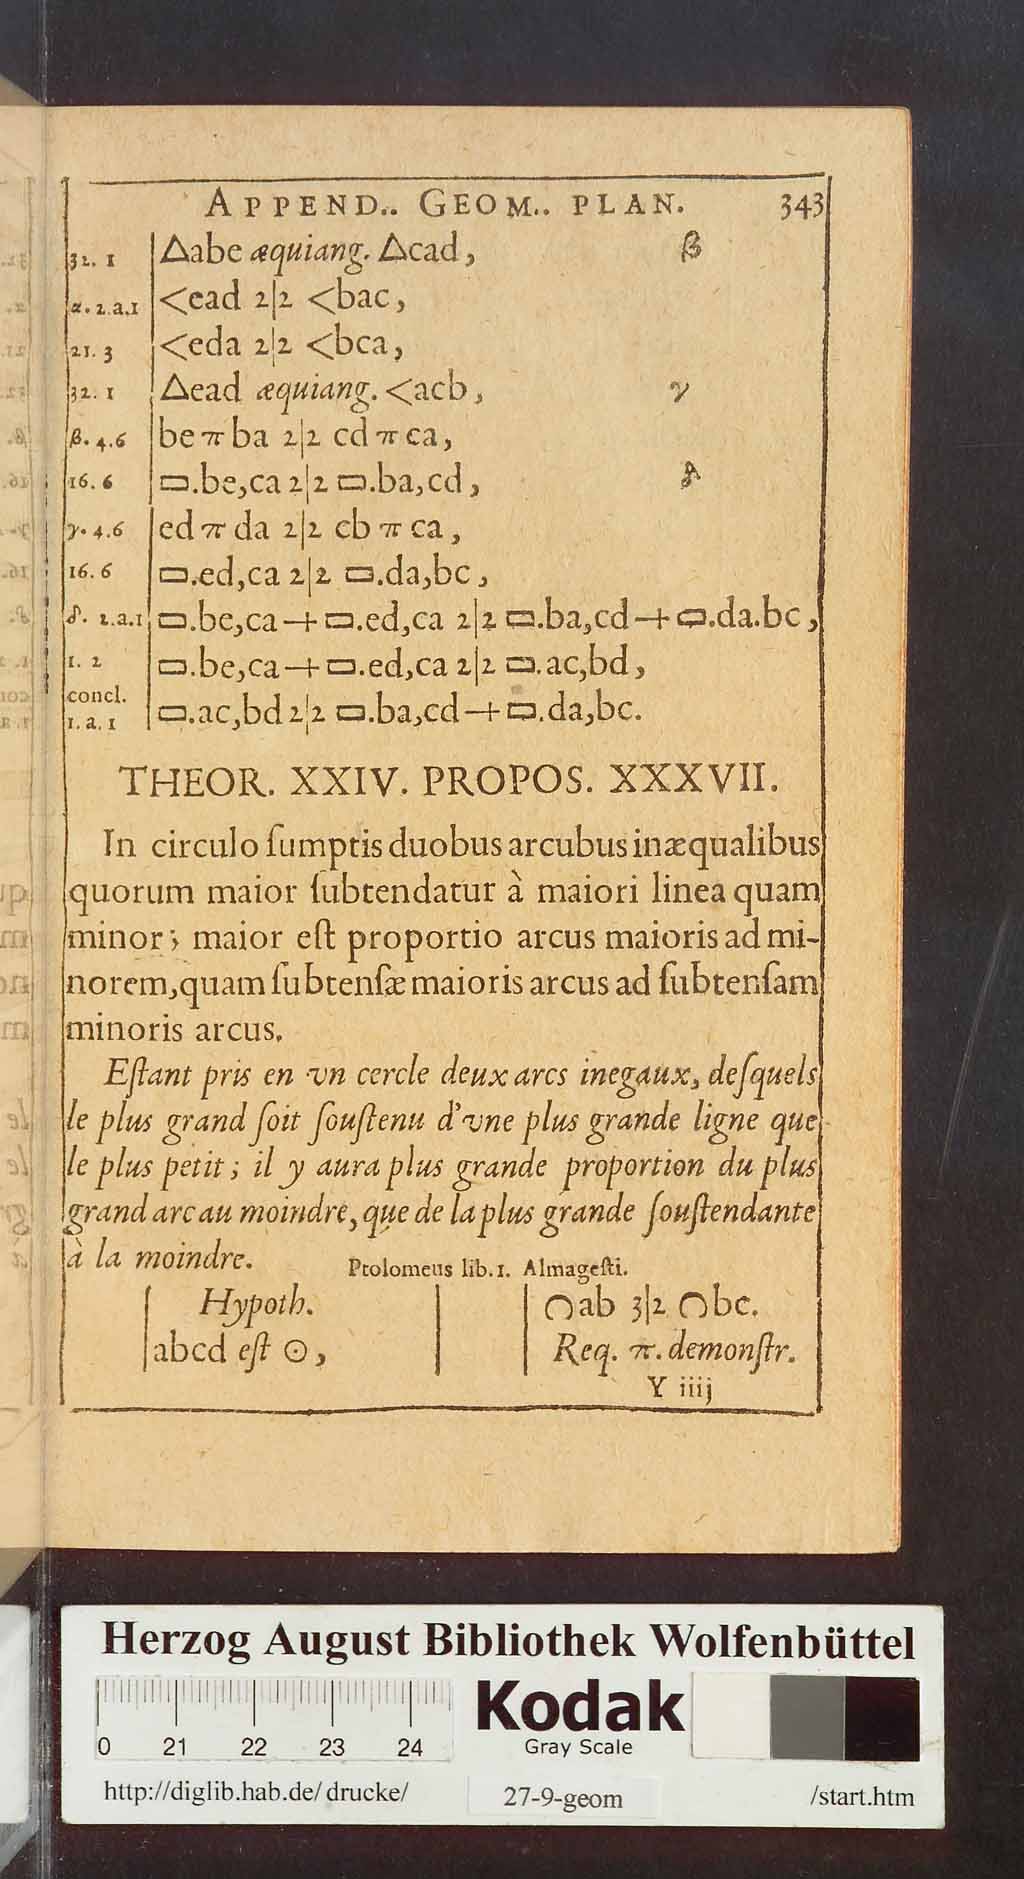 APPEND.. GEOM.. PLAN. 343
32. 1 △abe æquiang. △cad, β
α. 2.a.1 <ead 2|2 <bac,
21. 3 <eda 2|2 <bca,
32. 1 △ead æquiang. <acb, γ
β. 4.6 be π ba 2|2 cd π ca,
16. 6 ▭.be,ca 2|2 ▭.ba,cd, δ
γ. 4.6 ed π da 2|2 cb π ca,
16. 6 ▭.ed,ca 2|2 ▭.da,bc,
δ. 2.a.1 ▭.be,ca + ▭.ed,ca 2|2 ▭.ba,cd + ▭.da.bc,
1. 2 ▭.be,ca + ▭.ed,ca 2|2 ▭.ac,bd,
concl.
1. a. 1 ▭.ac,bd 2|2 ▭.ba,cd + ▭.da,bc.
THEOR. XXIV. PROPOS. XXXVII.
In circulo ſumptis duobus arcubus inæqualibus
quorum maior ſubtendatur à maiori linea quam
minor; maior eſt proportio arcus maioris ad mi-
norem, quam ſubtenſæ maioris arcus ad ſubtenſam
minoris arcus.
Eſtant pris en vn cercle deux arcs inegaux, deſquels
le plus grand ſoit ſouſtenu d'vne plus grande ligne que
le plus petit; il y aura plus grande proportion du plus
grand arc au moindre, que de la plus grande ſouſtendante
à la moindre. Ptolomeus lib. 1. Almageſti.
Hypoth. ∩ab 3|2 ∩bc.
abcd eſt ⊙, Req. π. demonſtr.
Y iiij
Herzog August Bibliothek Wolfenbüttel
0 21 22 23 24
Kodak
Gray Scale
http://diglib.hab.de/drucke/ 27-9-geom /start.htm